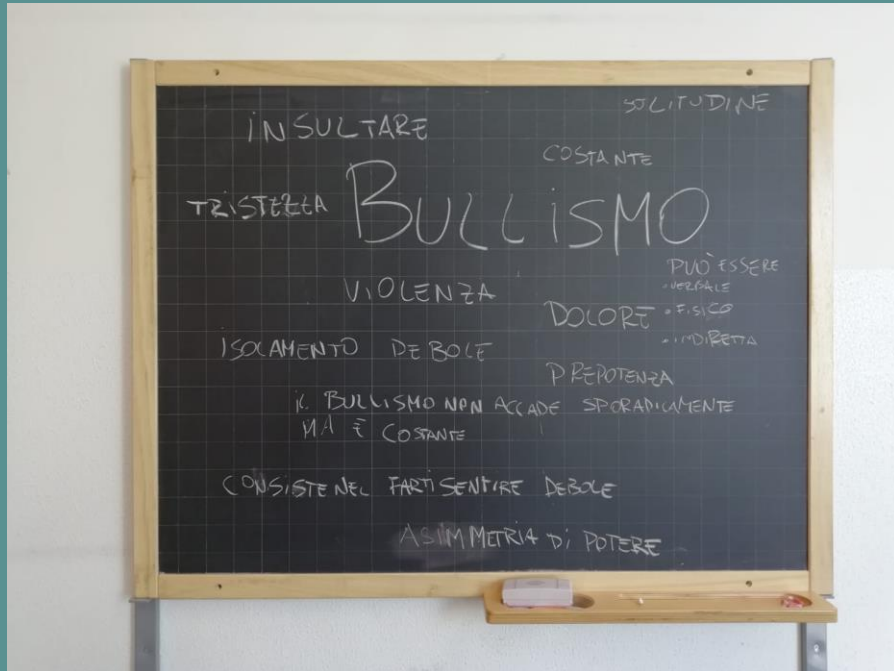 SOLITUDINE
INSULTARE
COSTANTE
TRISTEZZA
BULLISMO
PUÒ ESSERE
• VERBALE
• FISICO
• INDIRETTA
VIOLENZA
DOLORE
ISOLAMENTO DEBOLE
PREPOTENZA
IL BULLISMO NON ACCADE SPORADICAMENTE
MA È COSTANTE
CONSISTE NEL FARTI SENTIRE DEBOLE
ASIMMETRIA DI POTERE